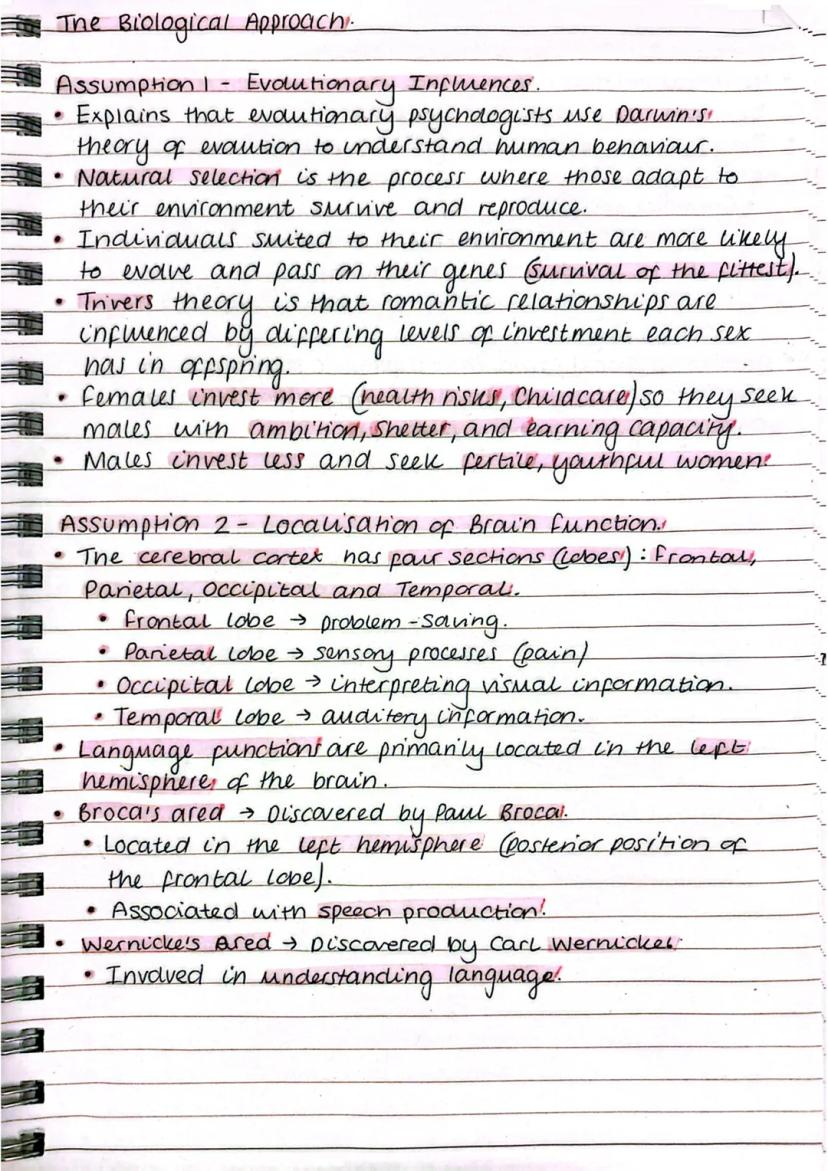 The Biological Approach.
Assumption 1 - Evolutionary Influences.
• Explains that evolutionary psychologists use Darwin's
theory of evolution to understand human behaviour.
• Natural selection is the process where those adapt to
their environment survive and reproduce.
• Individuals suited to their environment are more likely
to evolve and pass on their genes (survival of the fittest).
• Trivers theory is that romantic relationships are
influenced by differing levels of investment each sex
has in offspring.
• Females invest more (health risks, childcare) so they seek
males with ambition, shelter, and earning capacity.
• Males invest less and seek fertile, youthful women.
Assumption 2 - Localisation of Brain Function.
• The cerebral cortex has four sections (lobes) : Frontal,
Parietal, Occipital and Temporal.
• Frontal lobe → problem-solving.
• Parietal lobe → sensory processes (pain)
• Occipital lobe → interpreting visual information.
• Temporal lobe → auditory information.
• Language functions are primarily located in the left
hemisphere of the brain.
• Broca's area → Discovered by Paul Broca.
• Located in the left hemisphere (posterior position of
the frontal lobe).
• Associated with speech production.
• Wernicke's Area → Discovered by Carl Wernicke.
• Involved in understanding language.